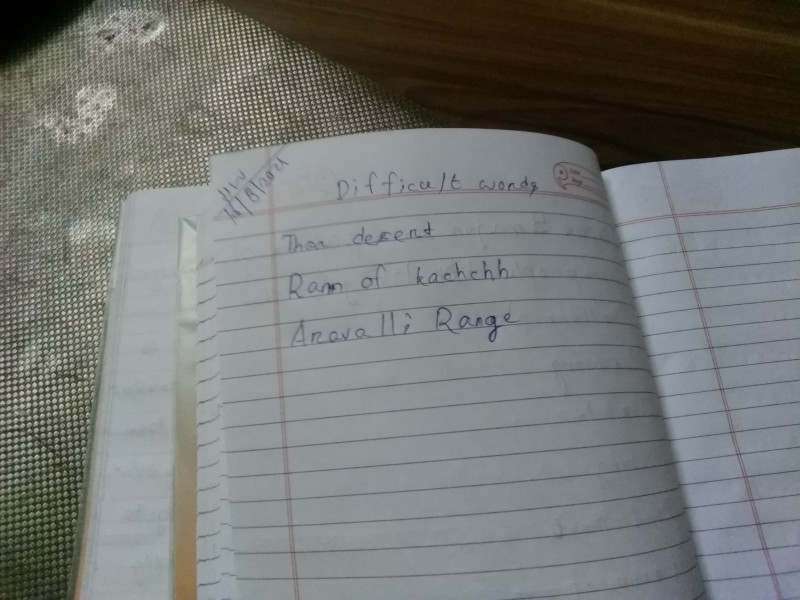 H/W
18/8/2021
Difficult words
Thar desert
Rann of kachchh
Aravalli Range